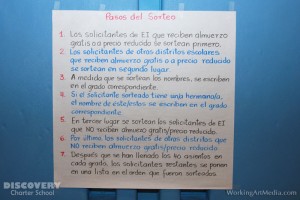 Pasos del Sorteo
1. Los solicitantes de EI que reciben almuerzo
gratis o a precio reducido se sortean primero.
2. Los solicitantes de otros distritos escolares
que reciben almuerzo gratis o a precio reducido
se sortean en segundo lugar.
3. A medida que se sortean los nombres, se escriben
en el grado correspondiente.
4. Si el solicitante sorteado tiene una hermano/a,
el nombre de este/estos se escriben en el grado
correspondiente.
5. En tercer lugar se sortean los solicitantes de EI
que NO reciben almuerzo gratis/precio reducido.
6. Por último, los solicitantes de otros distritos que
NO reciben almuerzo gratis/precio reducido.
7. Después que se han llenado los asientos en
cada grado, los solicitantes restantes se ponen
en una lista en el orden que fueron sorteados.
DISCOVERY
Charter School
WorkingArtMedia.com